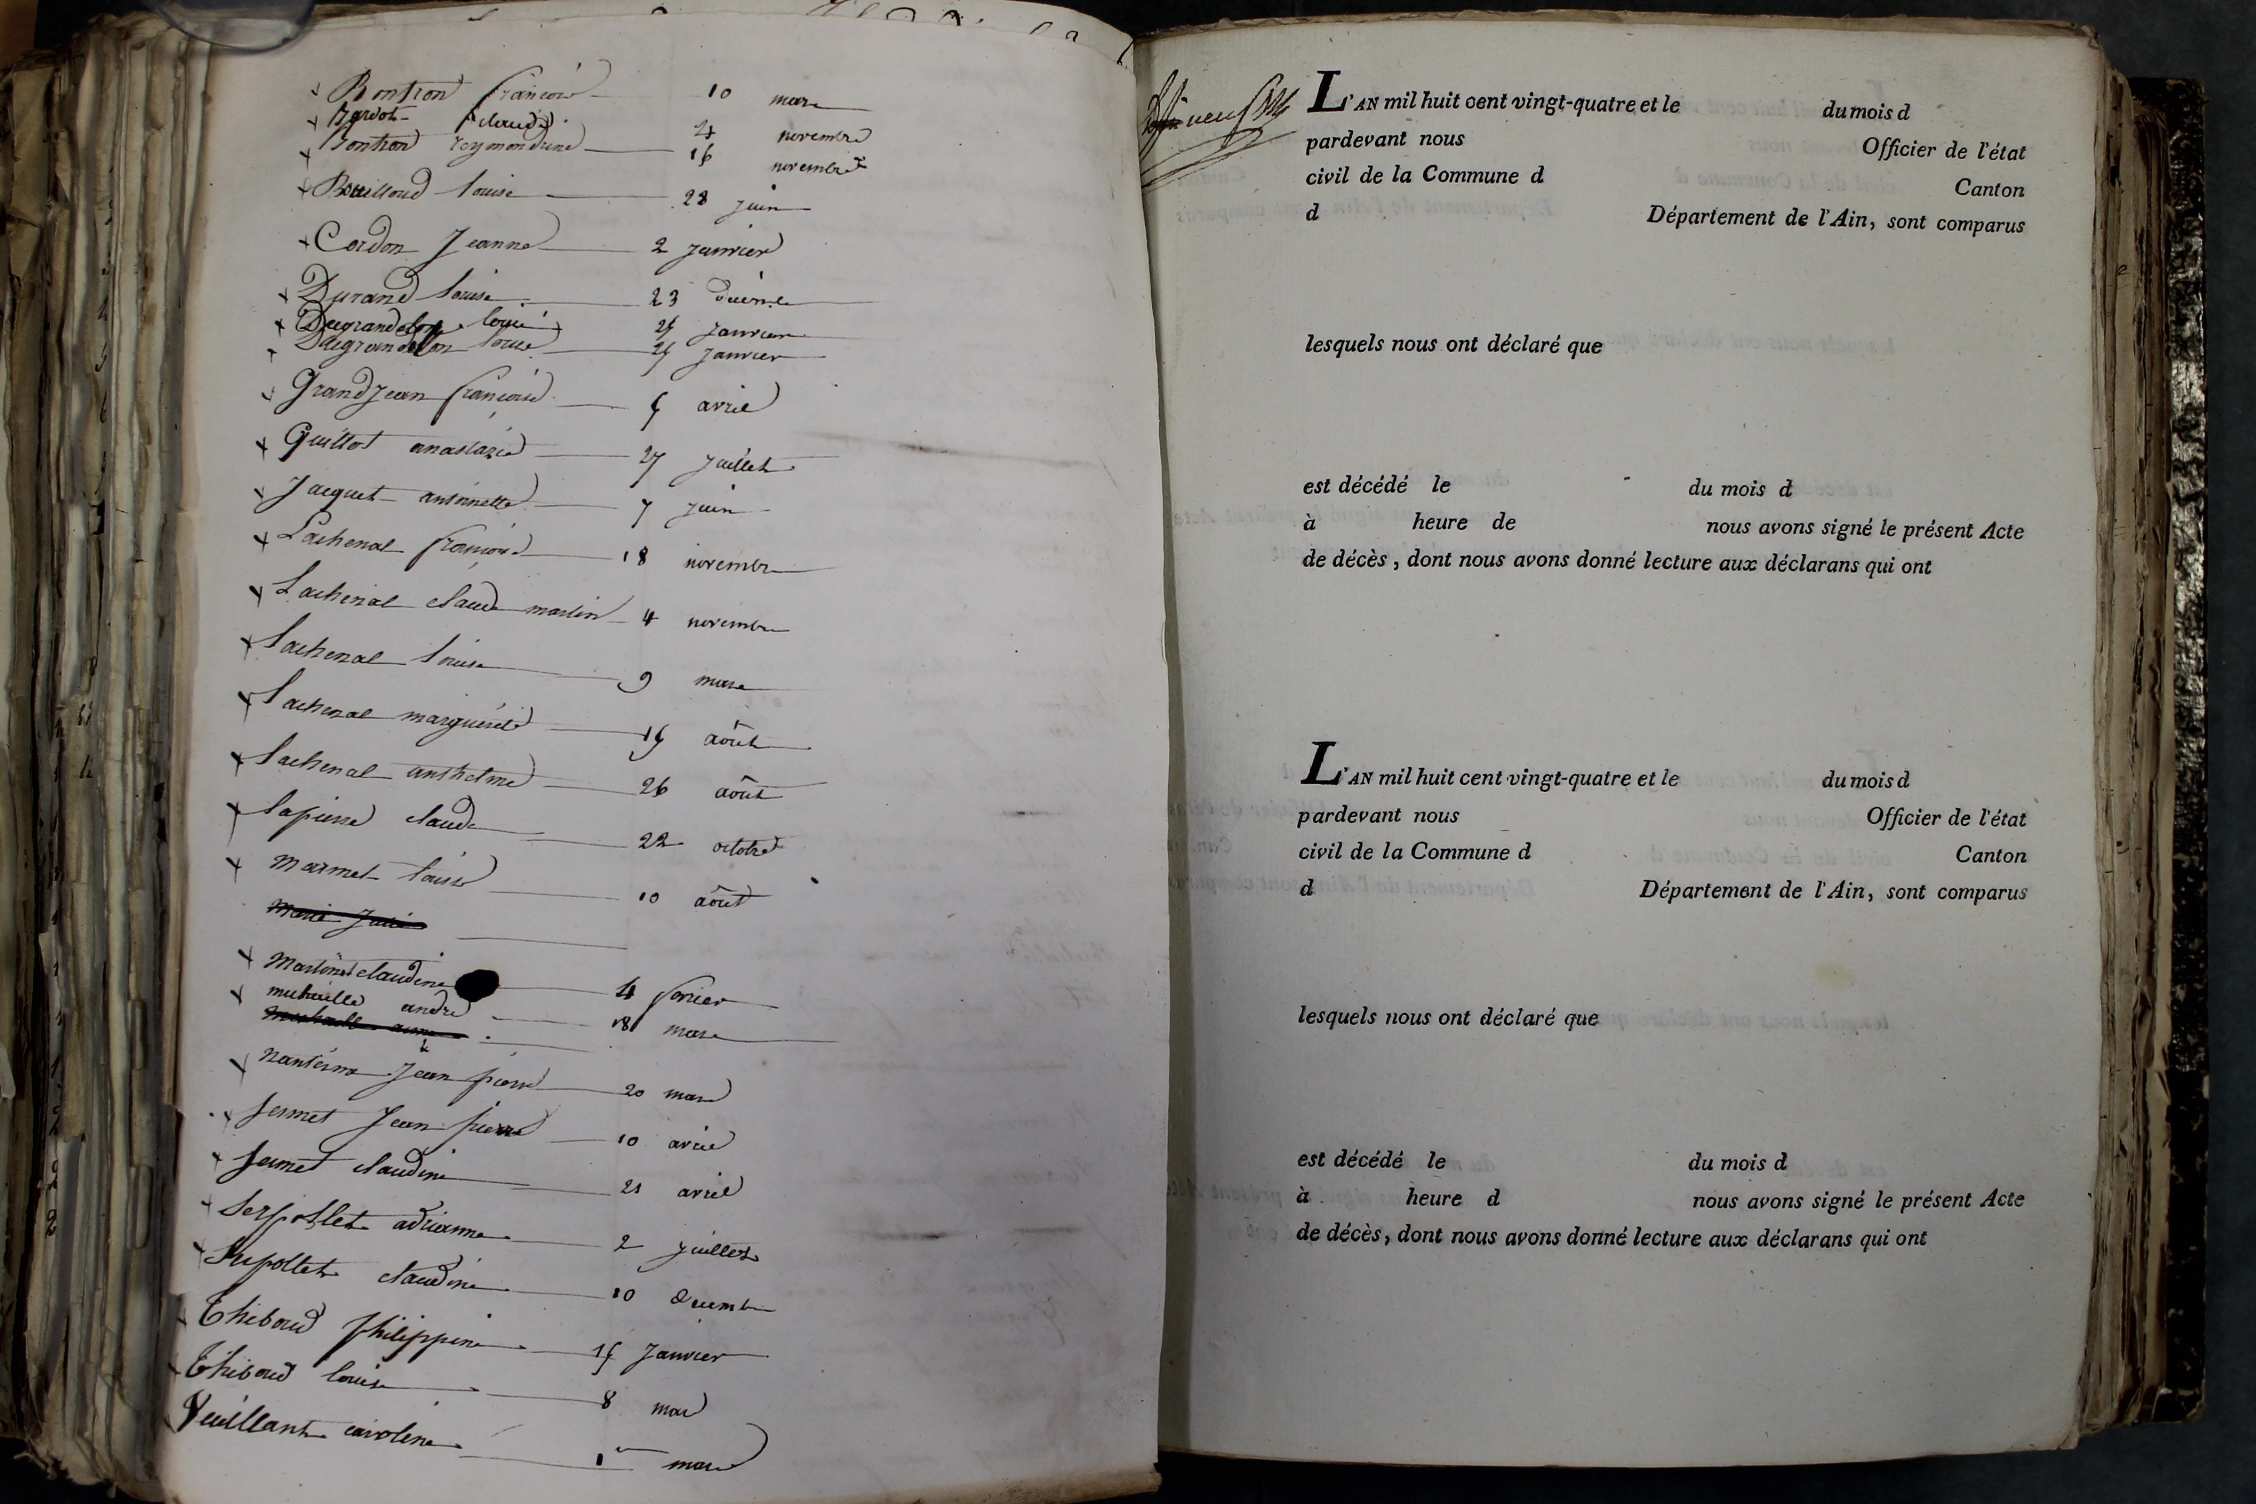 Bontron françois 10 mars
Bardot claude 4 novembre
Bontron reymondine 16 novembre
Bruilloud louise 28 juin
Cordon Jeanne 2 janvier
Durand louise 23
Degrandelon louis 25 janvier
Degrandelon louise 25 janvier
Grandjean françoise 5 avril
Guillot anastazie 27 juillet
Jacquet antoinette 7 juin
Lachenal françoise 18 novembre
Lachenal claude martin 4 novembre
Lachenal louise 9 mars
Lachenal marguerite 15 août
Lachenal anthelme 26 août
Lapierre claude 22 octobre
Marmet louise 10 août
Marie Julie
claudine 4 fevrier
michaille andré 18 mars
Jean pierre 20 mars
Sermet Jean pierre 10 avril
Sermet claudine 21 avril
Serpollet adrianne 2 juillet
Serpollet claudine 10 decembre
Thiboud philippine 15 janvier
Thiboud louise 8 mars
Veuillant caroline 1er mars
L'AN mil huit cent vingt-quatre et le du mois d
pardevant nous Officier de l'état
civil de la Commune d Canton
d Département de l'Ain, sont comparus
lesquels nous ont déclaré que
est décédé le du mois d
à heure de nous avons signé le présent Acte
de décès, dont nous avons donné lecture aux déclarans qui ont
L'AN mil huit cent vingt-quatre et le du mois d
pardevant nous Officier de l'état
civil de la Commune d Canton
d Département de l'Ain, sont comparus
lesquels nous ont déclaré que
est décédé le du mois d
à heure d nous avons signé le présent Acte
de décès, dont nous avons donné lecture aux déclarans qui ont